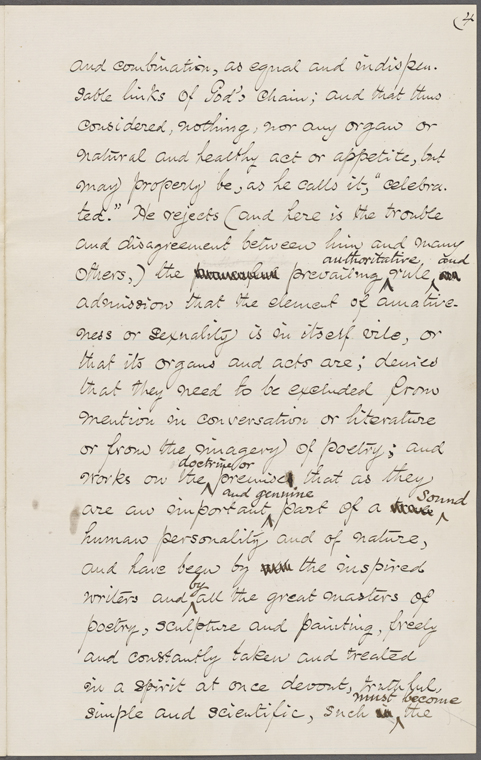 (4
and combination, as equal and indispen-
sable links of God's chain; and that thus
considered, nothing, nor any organ or
natural and healthy act or appetite, but
may properly be, as he calls it, "celebra-
ted." He rejects (and here is the trouble
and disagreement between him and many
authoritative and
others,) the prevailing rule
admission that the element of amative-
ness or sexuality is in itself vile, or
that its organs and acts are; denies
that they need to be excluded from
mention in conversation or literature
or from the imagery of poetry; and
doctrine or
works on the premise that as they
and genuine
are an important part of a sound
human personality and of nature,
and have been by the inspired
by
writers and all the great masters of
poetry, sculpture and painting, freely
and constantly taken and treated
in a spirit at once devout, truthful,
must become
simple and scientific, such the